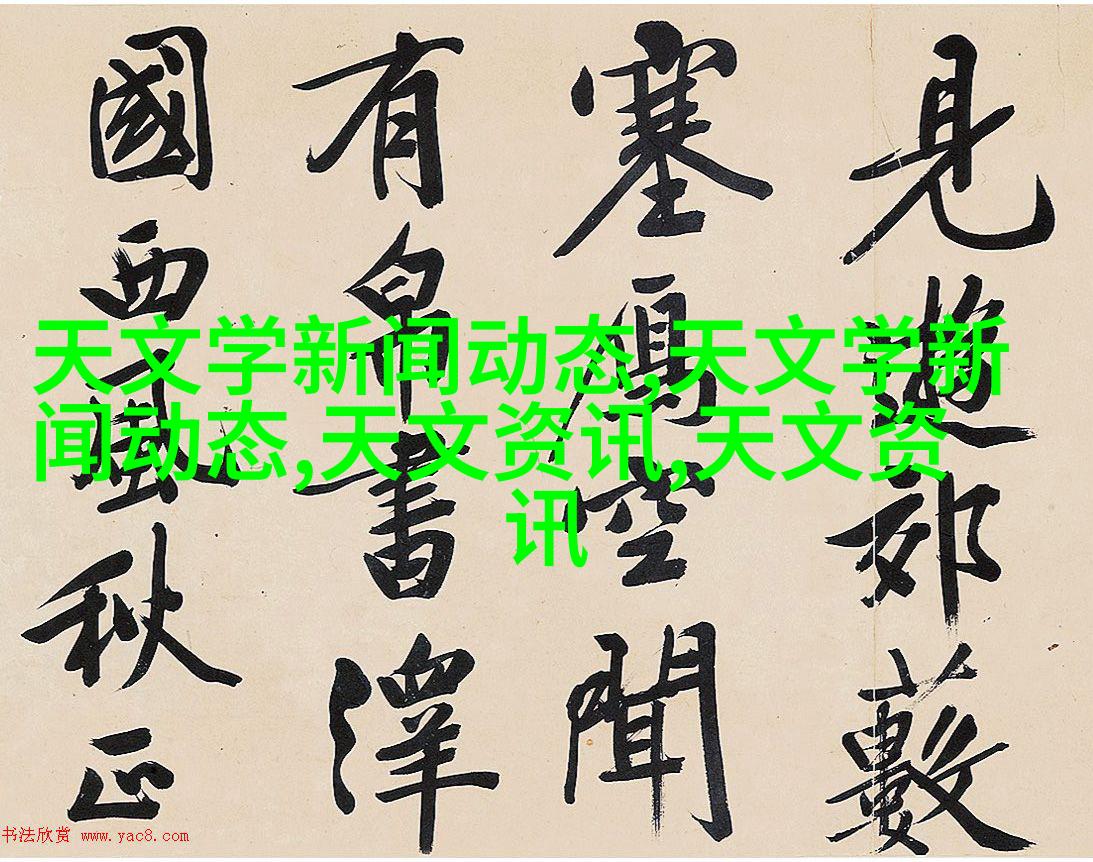 見遊郊藪
塞鴈空聞
有帛書澤
國西風秋正
天文学新闻动态,天文学新
闻动态,天文资讯,天文资
讯
书法欣赏 www.yac8.com